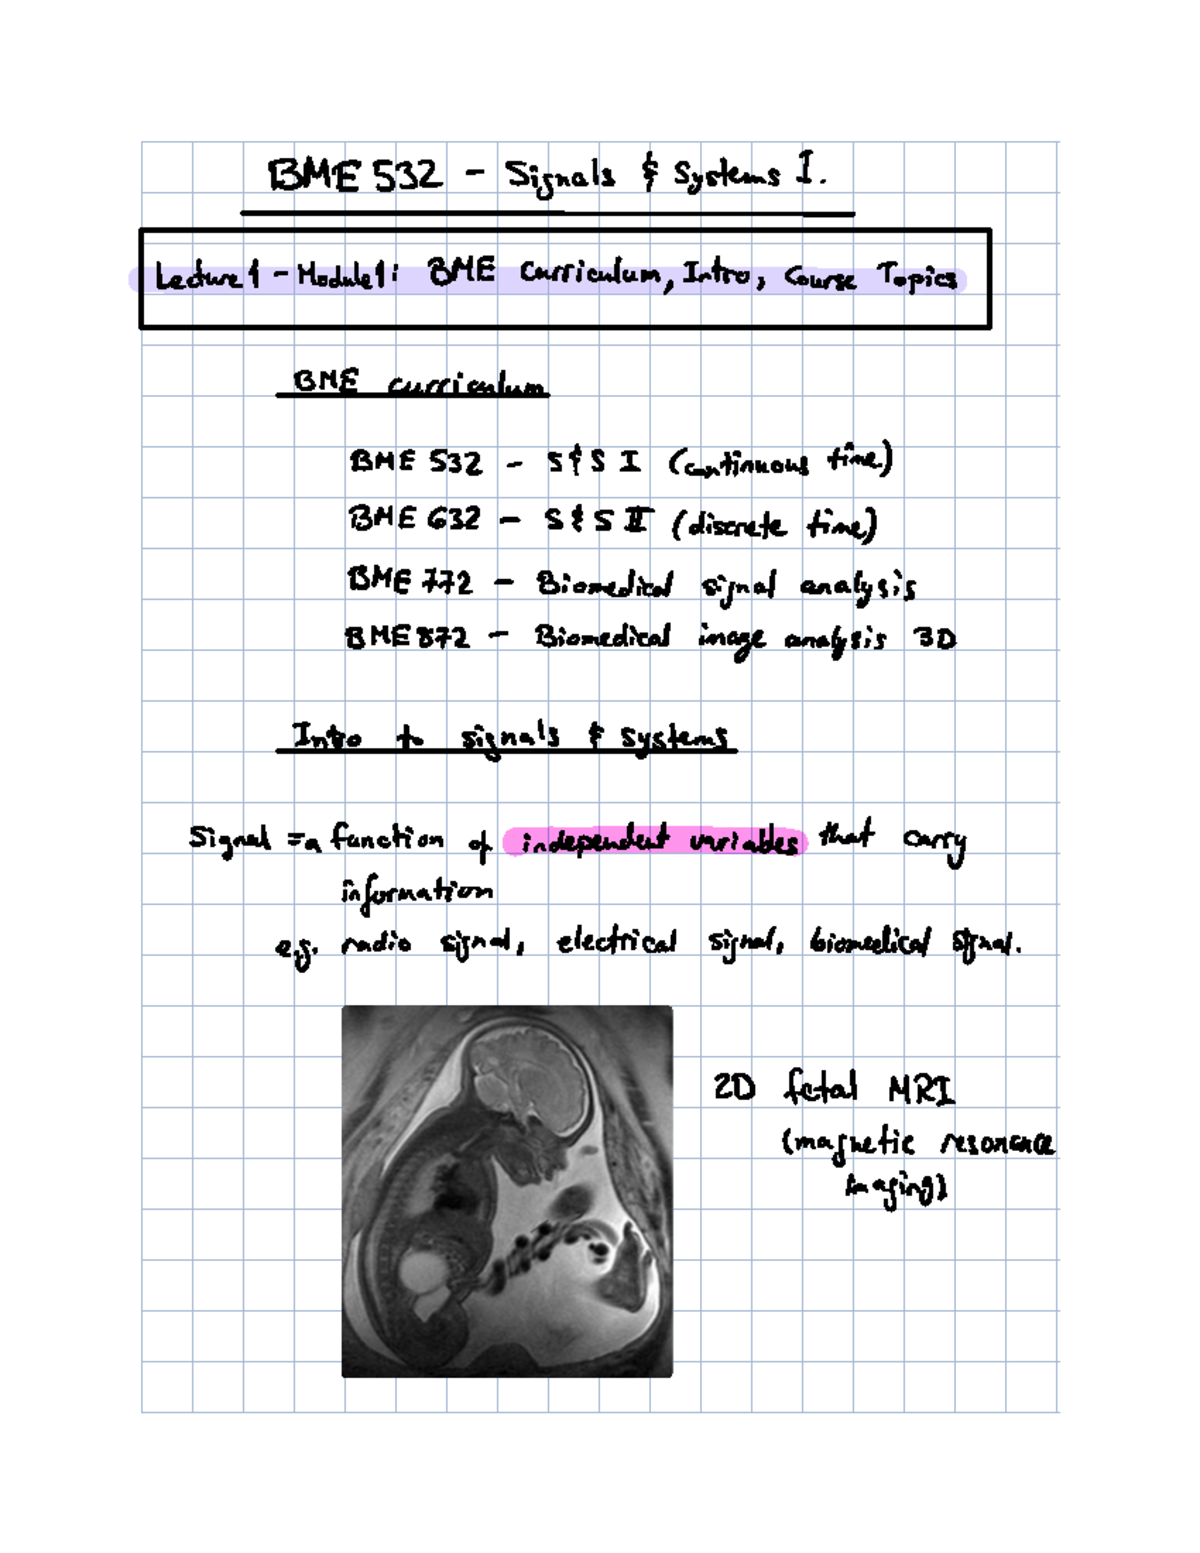 BME 532 - Signals & Systems I.
Lecture 1 - Module 1: BME Curriculum, Intro, Course Topics
BME curriculum
BME 532 - S&S I (continuous time)
BME 632 - S&S II (discrete time)
BME 772 - Biomedical signal analysis
BME 872 - Biomedical image analysis 3D
Intro to signals & systems
Signal = a function of independent variables that carry
information
e.g. radio signal, electrical signal, biomedical signal.
2D fetal MRI
(magnetic resonance
imaging)